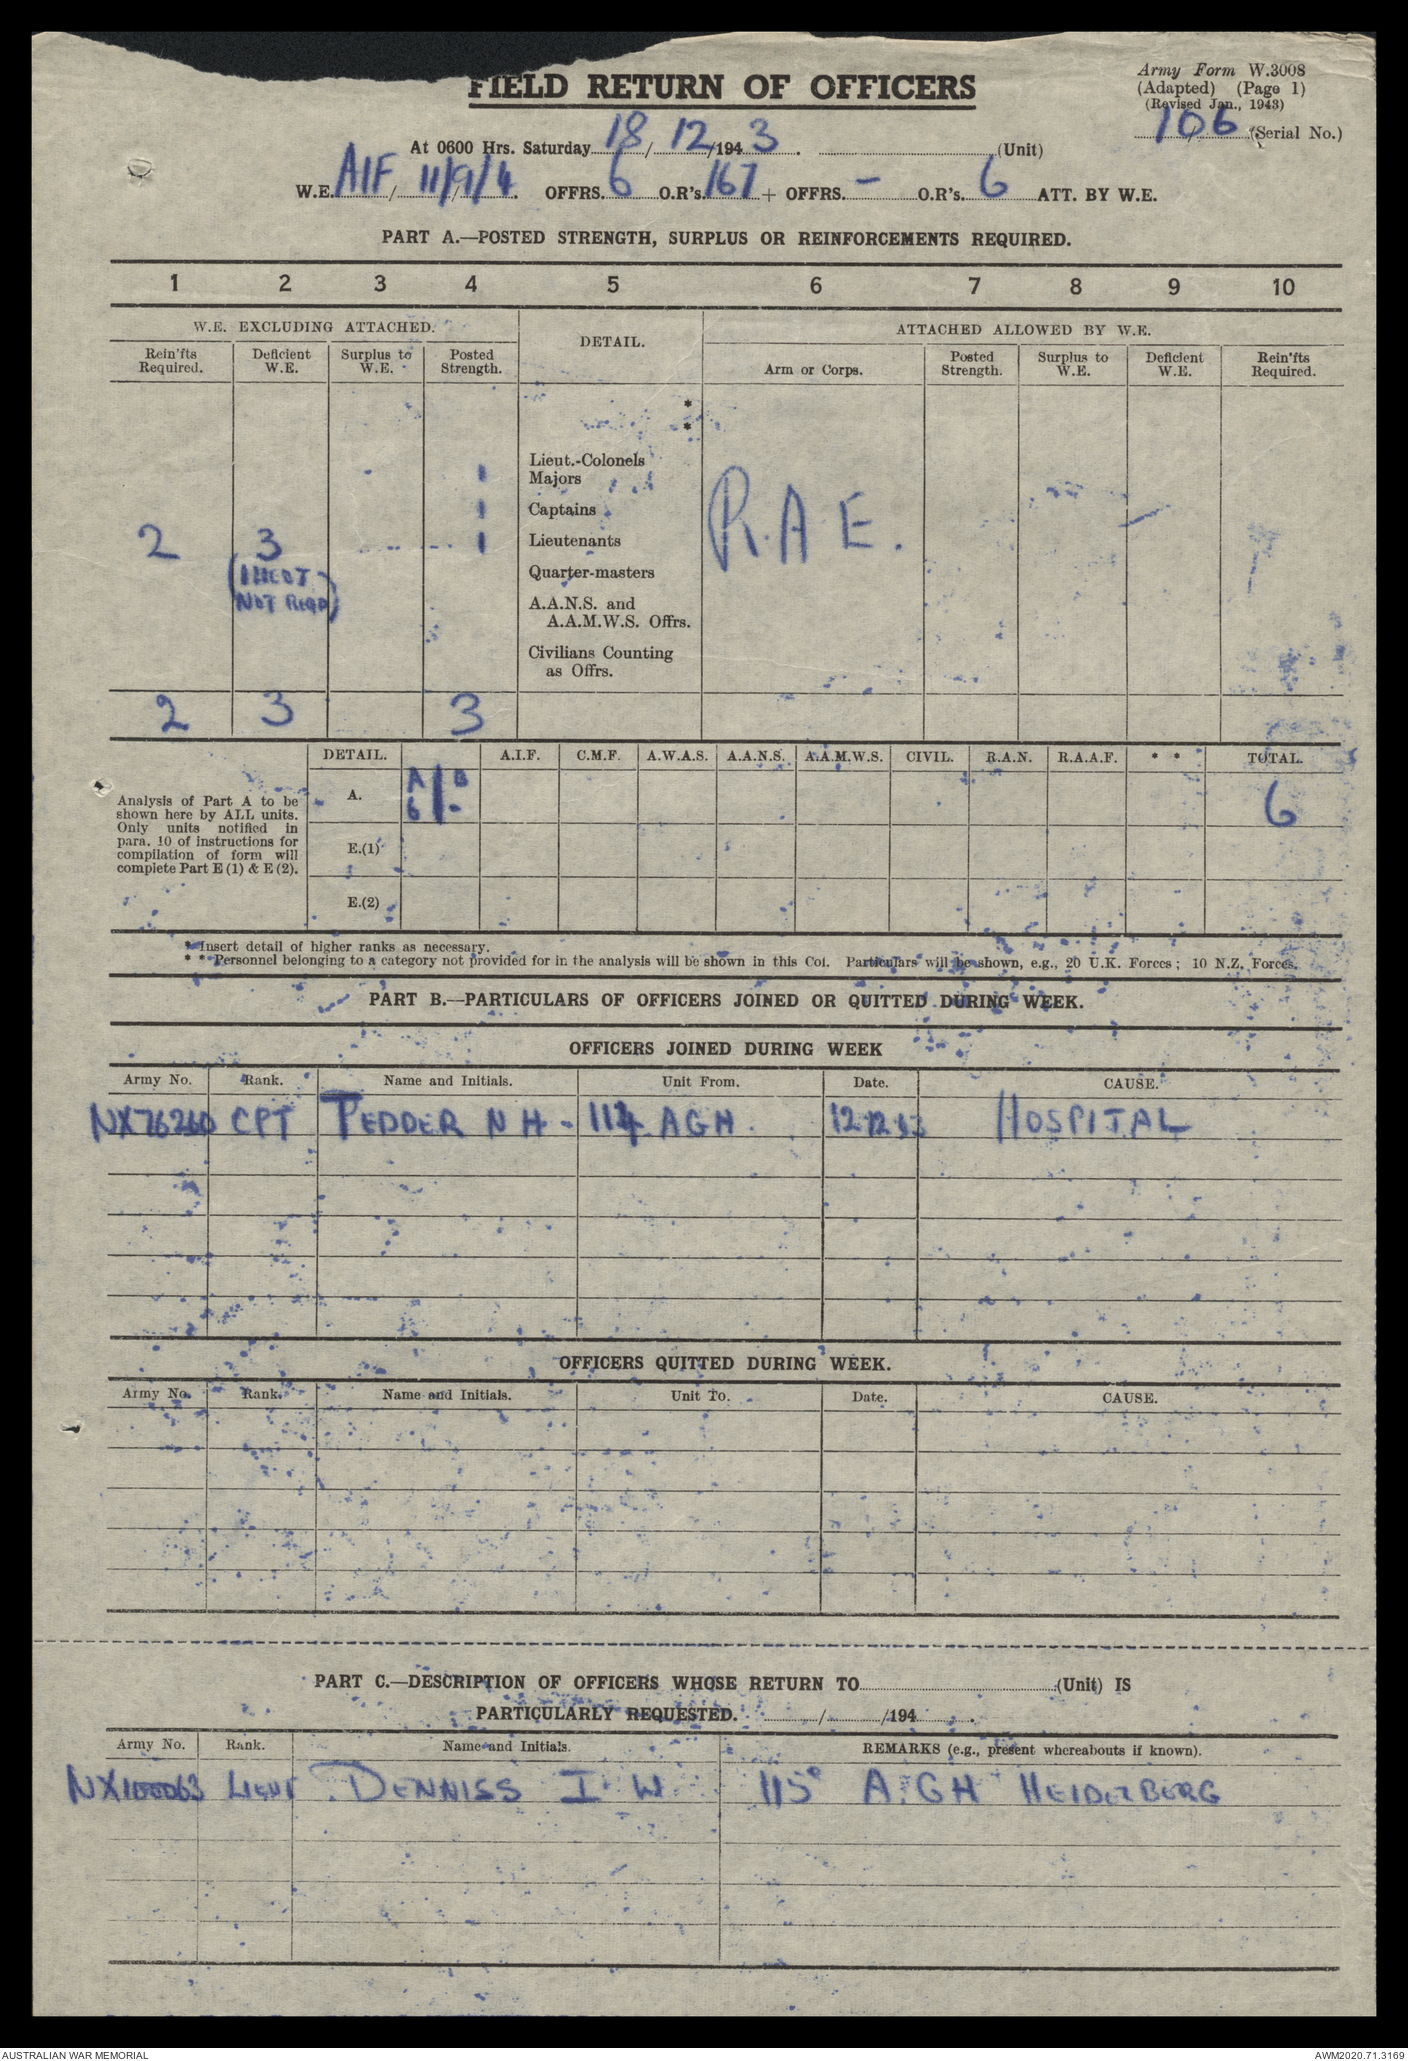 FIELD RETURN OF OFFICERS
Army Form W.3008
(Adapted) (Page 1)
(Revised Jan., 1943)
106 (Serial No.)
At 0600 Hrs. Saturday 18/12/1943. (Unit)
W.E. AIF/11/9/4. OFFRS. 6 O.R's. 167 + OFFRS. – O.R's. 6 ATT. BY W.E.
PART A.—POSTED STRENGTH, SURPLUS OR REINFORCEMENTS REQUIRED.
1 2 3 4 5 6 7 8 9 10
W.E. EXCLUDING ATTACHED. DETAIL. ATTACHED ALLOWED BY W.E.
Rein'fts Required. Deficient W.E. Surplus to W.E. Posted Strength. Arm or Corps. Posted Strength. Surplus to W.E. Deficient W.E. Rein'fts Required.
*
*
Lieut.-Colonels
1 Majors
1 Captains
R.A.E.
2 3 1 Lieutenants
(1 LIEUT
NOT REQD)
Quarter-masters
A.A.N.S. and
A.A.M.W.S. Offrs.
Civilians Counting
as Offrs.
2 3 3
DETAIL. A.I.F. C.M.F. A.W.A.S. A.A.N.S. A.A.M.W.S. CIVIL. R.A.N. R.A.A.F. * * TOTAL.
Analysis of Part A to be
shown here by ALL units.
Only units notified in
para. 10 of instructions for
compilation of form will
complete Part E (1) & E (2).
A. A 6 / B - 6
E.(1)
E.(2)
* Insert detail of higher ranks as necessary.
* * Personnel belonging to a category not provided for in the analysis will be shown in this Col. Particulars will be shown, e.g., 20 U.K. Forces; 10 N.Z. Forces.
PART B.—PARTICULARS OF OFFICERS JOINED OR QUITTED DURING WEEK.
OFFICERS JOINED DURING WEEK
Army No. Rank. Name and Initials. Unit From. Date. CAUSE.
NX76260 CPT PEDDER N H - AGH. HOSPITAL
OFFICERS QUITTED DURING WEEK.
Army No. Rank. Name and Initials. Unit To. Date. CAUSE.
PART C.—DESCRIPTION OF OFFICERS WHOSE RETURN TO (Unit) IS
PARTICULARLY REQUESTED. / /194 .
Army No. Rank. Name and Initials. REMARKS (e.g., present whereabouts if known).
NX100063 LIEUT. DENNISS I W 115 A.G.H HEIDELBERG
AUSTRALIAN WAR MEMORIAL
AWM2020.71.3169